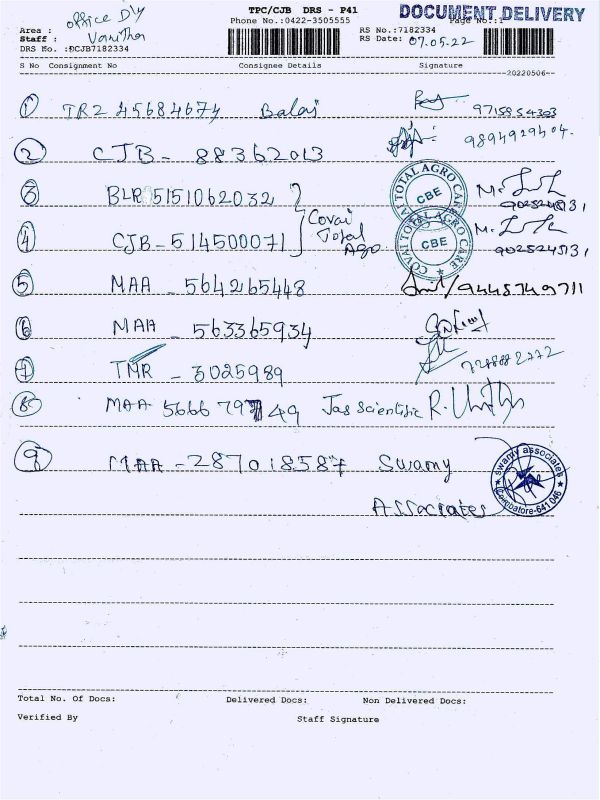 office Dly
TPC/CJB DRS - P41
DOCUMENT DELIVERY
Area :
Phone No.:0422-3505555
Page No.:1
Staff : Vanitha
RS No.:7182334
DRS No. :DCJB7182334
RS Date: 07.05.22
S No Consignment No Consignee Details Signature
--20220506--
1 TR2 45684674 Balaji
9715954303
9894929404.
2 CJB - 88362013
3 BLR 5151062032
COVAI TOTAL AGRO CARE CBE
9025245131
Covai Total Ago
4 CJB - 514500071
COVAI TOTAL AGRO CARE CBE
9025245131
5 MAA - 564265448
9448749711
6 MAA - 563365934
7 TMR - 3025989
8 MAA 5666 797 49 Jas Scientific
9 MAA - 287018587 Swamy Associates
swamy associates Coimbatore-641 046
Total No. Of Docs: Delivered Docs: Non Delivered Docs:
Verified By Staff Signature